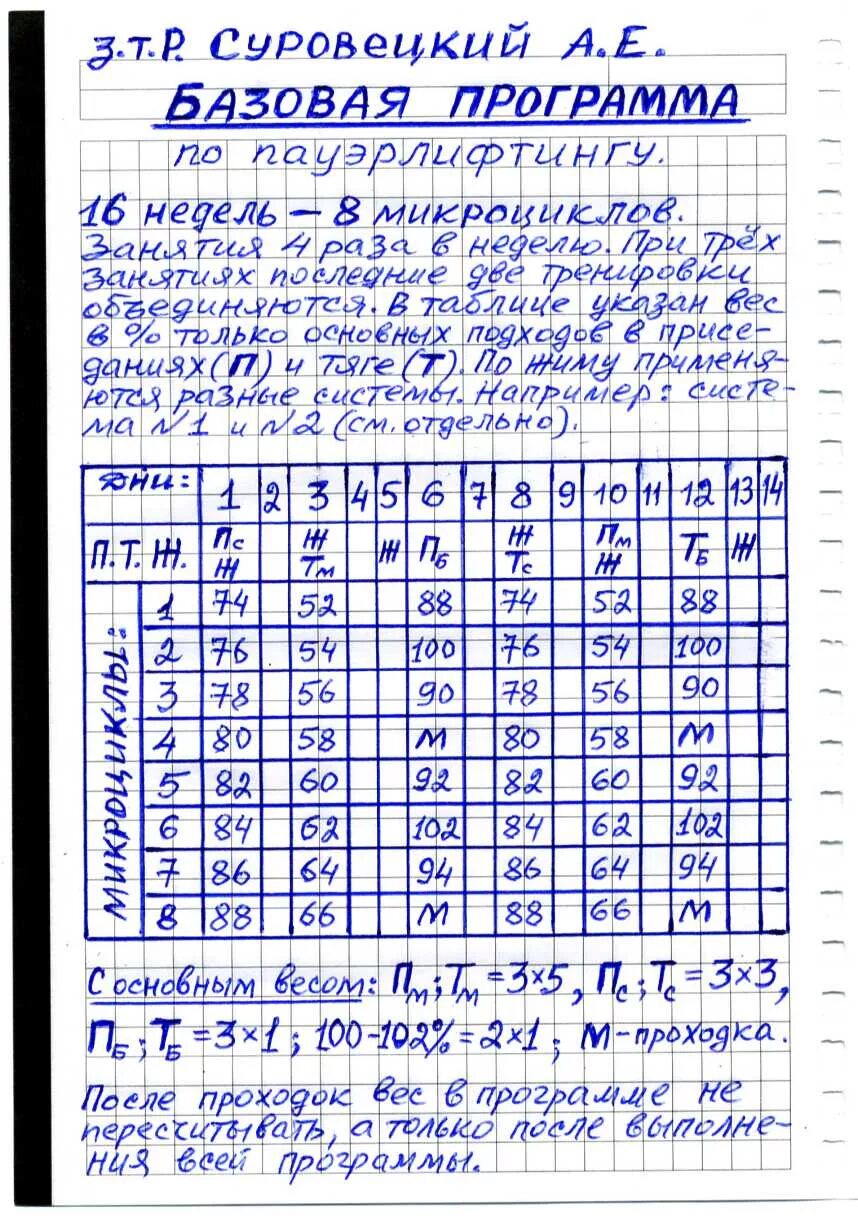 З.Т.Р. СУРОВЕЦКИЙ А.Е.
БАЗОВАЯ ПРОГРАММА
по пауэрлифтингу.
16 недель – 8 микроциклов.
Занятия 4 раза в неделю. При трёх
занятиях последние две тренировки
объединяются. В таблице указан вес
в % только основных подходов в присе-
даниях (П) и тяге (Т). По жиму применя-
ются разные системы. Например: систе-
ма №1 и №2 (см. отдельно).
Дни: 1 2 3 4 5 6 7 8 9 10 11 12 13 14
П.Т.Ж. Пс Ж Ж Тм Ж ПБ Ж Тс Пм Ж ТБ Ж
МИКРОЦИКЛЫ:
1 74 52 88 74 52 88
2 76 54 100 76 54 100
3 78 56 90 78 56 90
4 80 58 М 80 58 М
5 82 60 92 82 60 92
6 84 62 102 84 62 102
7 86 64 94 86 64 94
8 88 66 М 88 66 М
С основным весом: Пм; Тм = 3×5, Пс; Тс = 3×3,
ПБ; ТБ = 3×1; 100-102% = 2×1; М-проходка.
После проходок вес в программе не
пересчитывать, а только после выполне-
ния всей программы.